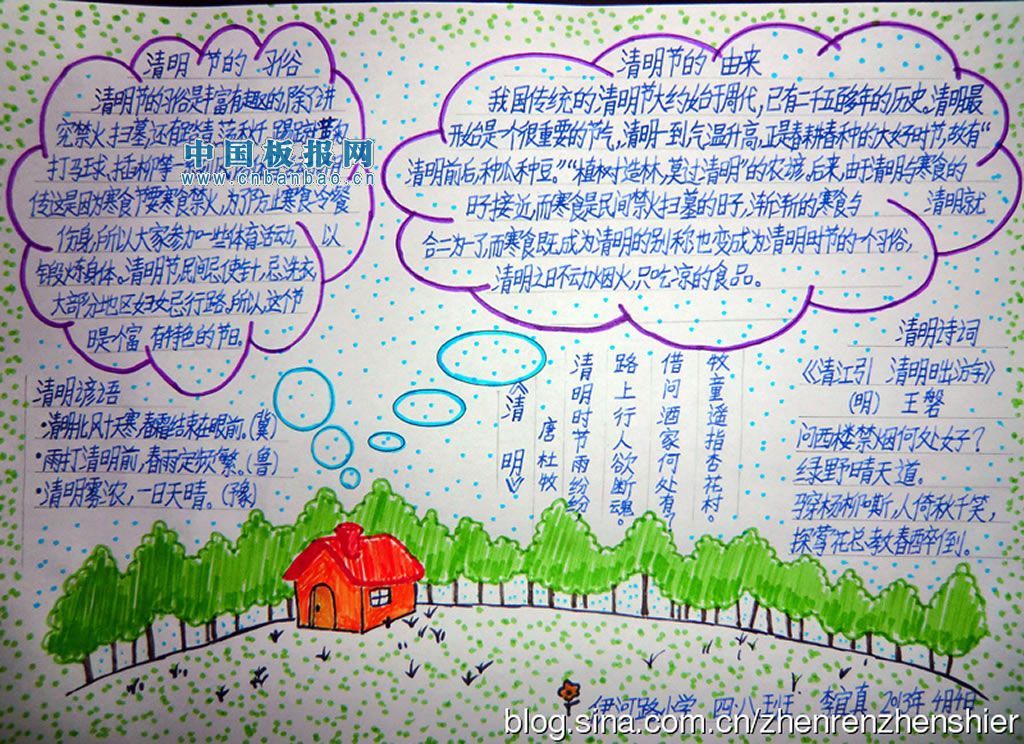 清明节的习俗
清明节的习俗是丰富有趣的,除了讲
究禁火扫墓,还有踏青、荡秋千、蹴鞠
打马球、插柳等一
传这是因为寒食节要寒食禁火,为了防止寒食冷餐
伤身,所以大家参加一些体育活动,以
锻炼身体。清明节,民间忌使针,忌洗衣,
大部分地区妇女忌行路,所以,这个节
日是个富有特色的节日.
清明节的由来
我国传统的清明节大约始于周代,已有二千五百多年的历史。清明最
开始是一个很重要的节气,清明一到气温升高,正是春耕春种的大好时节,故有“
清明前后,种瓜种豆。”“植树造林,莫过清明”的农谚。后来,由于清明与寒食的
日子接近,而寒食是民间禁火扫墓的日子,渐渐的寒食与清明就
合二为一了,而寒食既成为清明的别称也变成为清明时节的一个习俗,
清明之日不动烟火,只吃凉的食品。
中国板报网
www.cnbanbao.cn
清明谚语
·清明北风十天寒,春霜结束在眼前。(冀)
·雨打清明前,春雨定频繁。(鲁)
·清明雾浓,一日天晴。(豫)
《清明》
唐 杜牧
清明时节雨纷纷
路上行人欲断魂。
借问酒家何处有?
牧童遥指杏花村。
清明诗词
《清江引 清明日出游》
(明) 王磐
问西楼禁烟何处好?
绿野晴天道。
马穿杨柳嘶,人倚秋千笑,
探莺花总教春醉倒。
伊河路小学 四.八班 李宜真 2013年4月4日
blog.sina.com.cn/zhenrenzhenshier